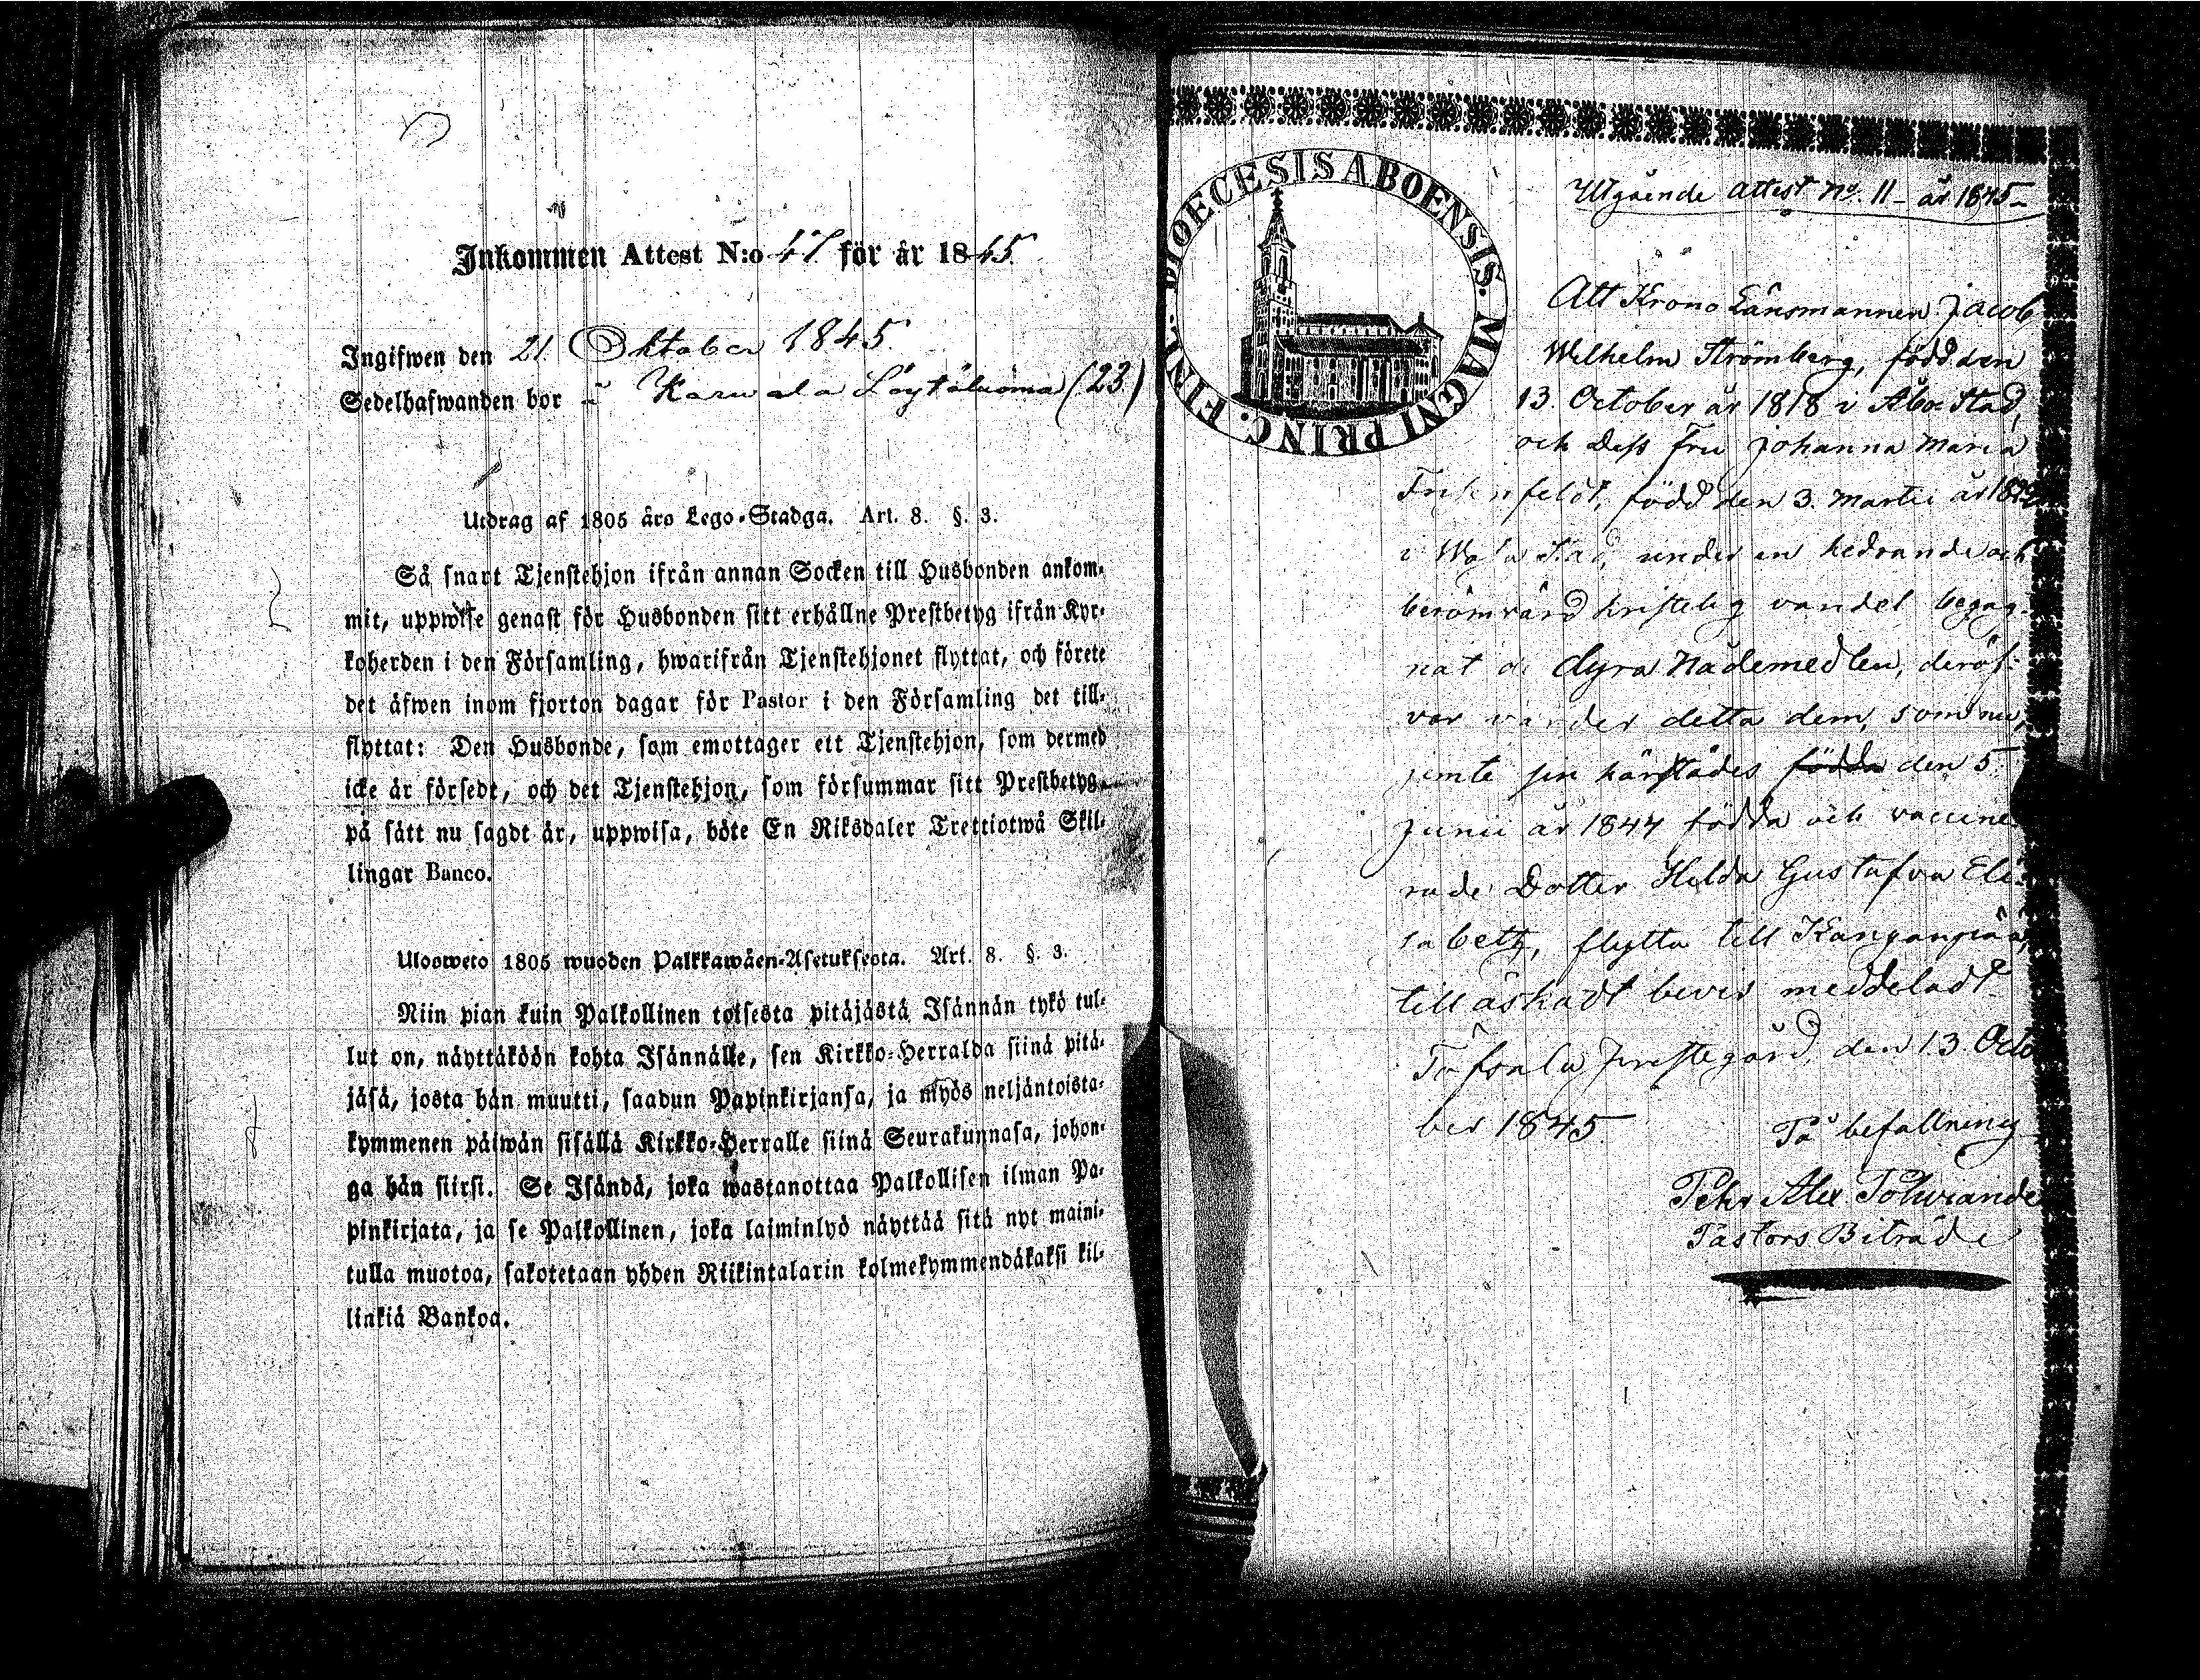 Inkommen Attest N:o 47. för år 1845.
Ingifwen den 21 Oktober 1845.
Sedelhafwanden bor å Karwala Löytäluoma (23)
Utdrag af 1805 års Lego-Stadga. Art. 8. §. 3.
Så snart Tjenstehjon ifrån annan Socken till Husbonden ankom-
mit, uppwise genast för Husbonden sitt erhållne Prestbetyg ifrån Kyr-
koherden i den Församling, hwarifrån Tjenstehjonet flyttat, och förete
det äfwen inom fjorton dagar för Pastor i den Församling det till-
flyttat: Den Husbonde, som emottager ett Tjenstehjon, som dermed
icke är försedt, och det Tjenstehjon, som försummar sitt Prestbetyg
på sätt nu sagdt är, uppwisa, böte En Riksdaler Trettiotwå Skil-
lingar Banco.
Ulosweto 1805 wuoden Palkkawäen-Asetuksesta. Art. 8. §. 3.
Niin pian kuin Palkollinen toisesta pitäjästä Isännän tykö tul-
lut on, näyttäköön kohta Isännälle, sen Kirkko-Herralda siinä pitä-
jäsä, josta hän muutti, saadun Papinkirjansa, ja myös neljäntoista-
kymmenen päiwän sisällä Kirkko-Herralle siinä Seurakunnasa, johon-
ga hän siirsi. Se Isändä, joka wastanottaa Palkollisen ilman Pa-
pinkirjata, ja se Palkollinen, joka laiminlyö näyttää sitä nyt maini-
tulla muotoa, sakotetaan yhden Riikintalarin kolmekymmendäkaksi kil-
linkiä Bankoa.
DIOECESIS ABOENSIS. MAGNI PRINC. FINL.
Utgående attest No. 11 - år 1845 -
Att Krono Länsmannen Jacob
Wilhelm Strömberg, född den
13. October år 1818 i Åbo Stad,
och Dess Fru Johanna Maria
född den 3. Martii år
i Wasa Stad, under en hedrande och
berömvärd kristelig vandel begag-
nat de dyra Nådemedlen, deröf-
ver varder detta dem, som nu,
jemte sin härstädes födda den 5
Junii år 1844 födda och vaccine-
rade Dotter Hilda Gustafva Eli-
sabeth, flytta till Kanganpää,
till äskadt bevis meddeladt
Töfsala prestegård, den 13. Octo
ber 1845.
På befallning
Pehr Alex Tolwiander
Pastors Biträde